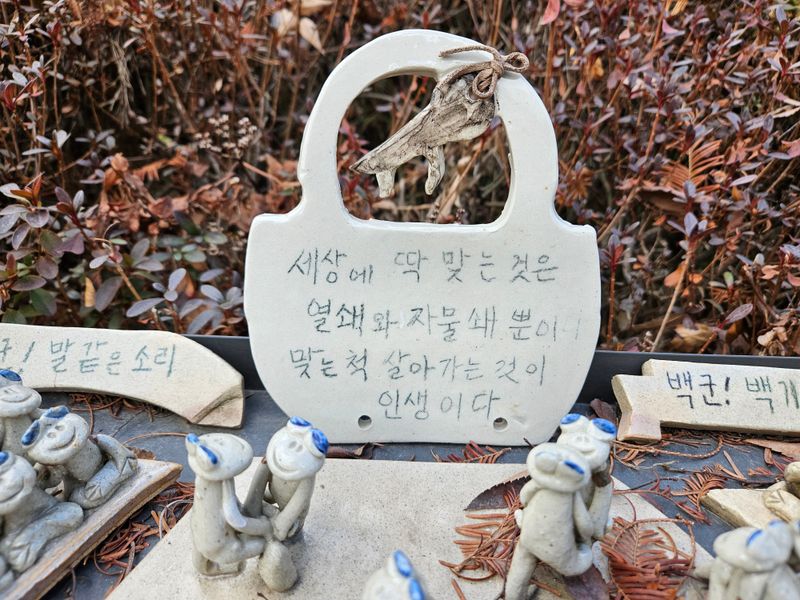 세상에 딱 맞는 것은
열쇄와 자물쇄 뿐이니
맞는척 살아가는 것이
인생이다
군! 말같은 소리
백군! 백기